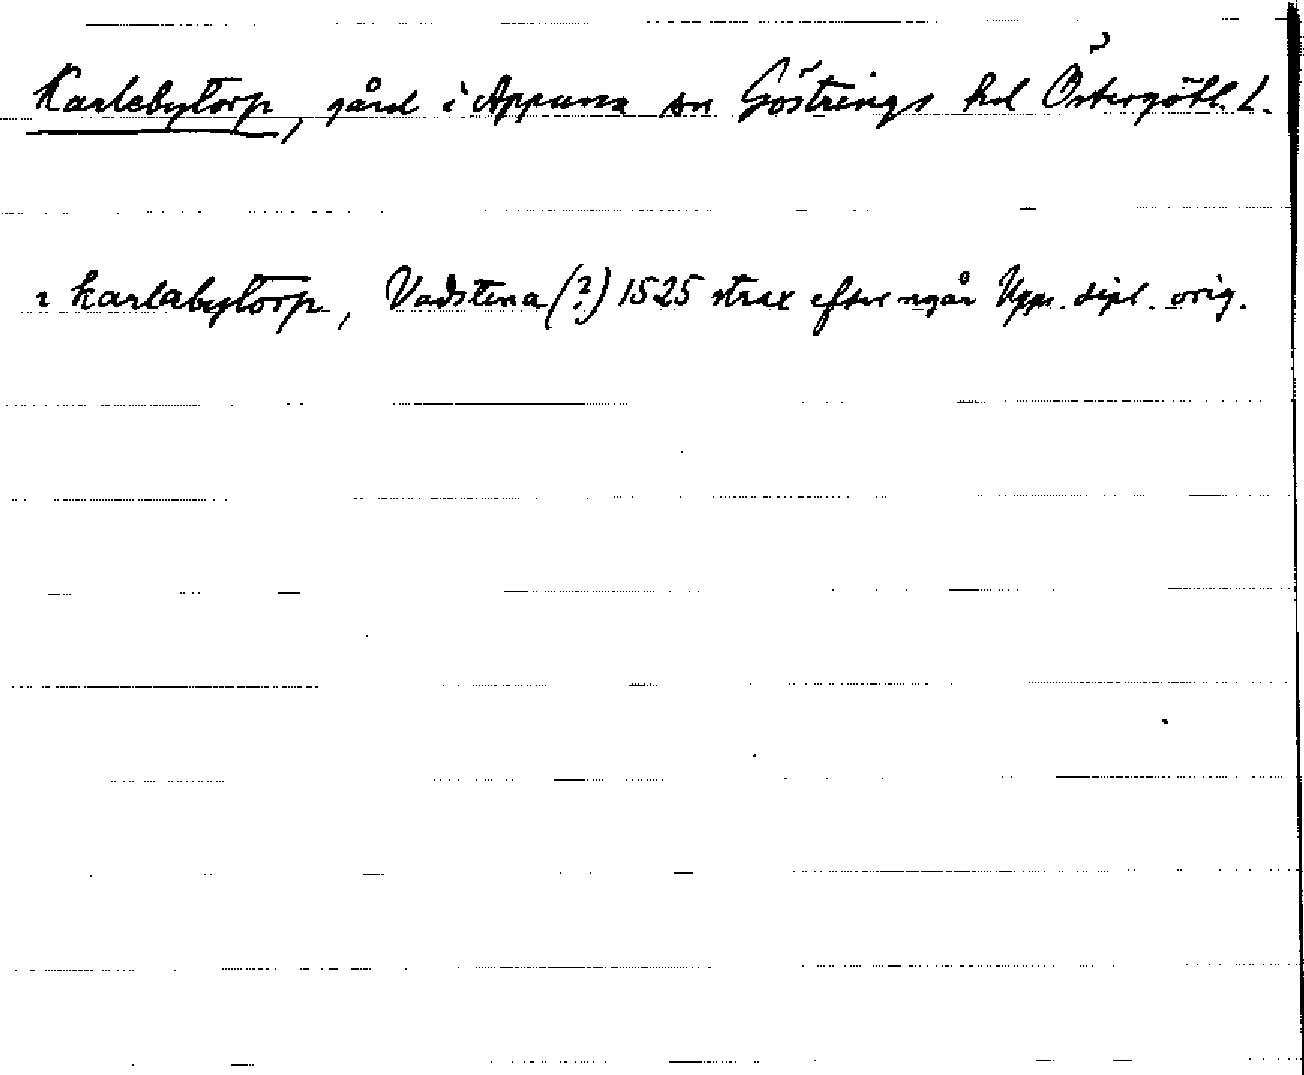 Karlebytorp, gård i Appuna sn Göstrings hd Östergötl. L.
i karlabytorp, Vadstena (?) 1525 strax efter nyår Upps. dipl. orig.